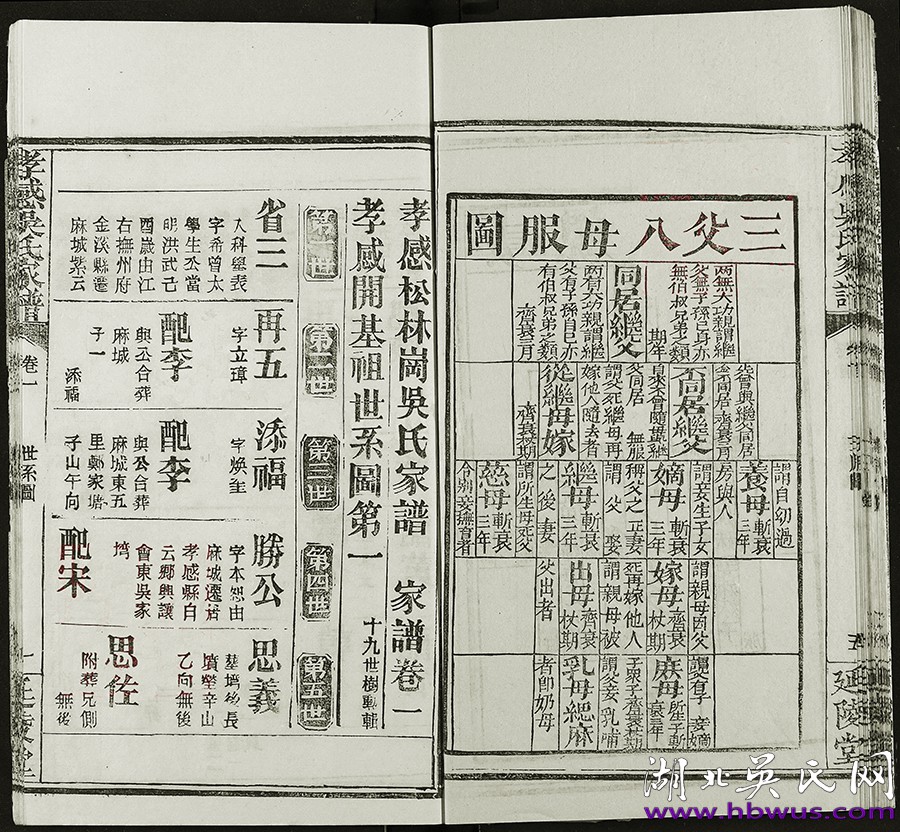 三父八母服圖
兩無大功親謂繼
父無子孫己身亦
無伯叔兄弟之類
期年
同居繼父
兩有大功親謂繼
父有子孫自己亦
有伯叔兄弟之類
齊衰三月
先曾與繼父同居
今不同居齊衰三月
不同居繼父
自來不曾隨母與繼
父同居 無服
謂父死繼母再
嫁他人隨去者
從繼母嫁
齊衰杖期
謂自幼過
養母 斬衰三年
房與人
謂妾生子女
嫡母 斬衰三年
稱父之正妻
謂父娶
繼母 斬衰三年
之後妻
謂所生母死父
慈母 斬衰三年
令別妾撫育者
謂親母因父
嫁母 齊衰杖期
死再嫁他人
謂親母被
出母 齊衰杖期
父出者
謂父有子 妾嫡
庶母 所生子斬衰三年
子眾子齊衰杖期
謂父妾乳哺
乳母 緦麻
者即奶母
五
延陵堂
孝感松林崗吳氏家譜 家譜卷一
十九世樹勳輯
孝感開基祖世系圖第一
第一世
第二世
第三世
第四世
第五世
省三
入科舉表
字希曾太
學生公當
明洪武己
酉歲由江
右撫州府
金溪縣遷
麻城紫云
再五
字立璋
配李
與公合葬
麻城
子一 添福
添福
字煥奎
配李
與公合葬
麻城東五
里鄭家塘
子山午向
勝公
字本恕由
麻城遷居
孝感縣白
云鄉興讓
會東吳家
塆
配宋
思義
墓塆後長
墳塋辛山
乙向無後
思佐
附葬兄側
無後
孝感吳氏家譜
卷一
世系圖
一
湖北吳氏网
www.hbwus.com